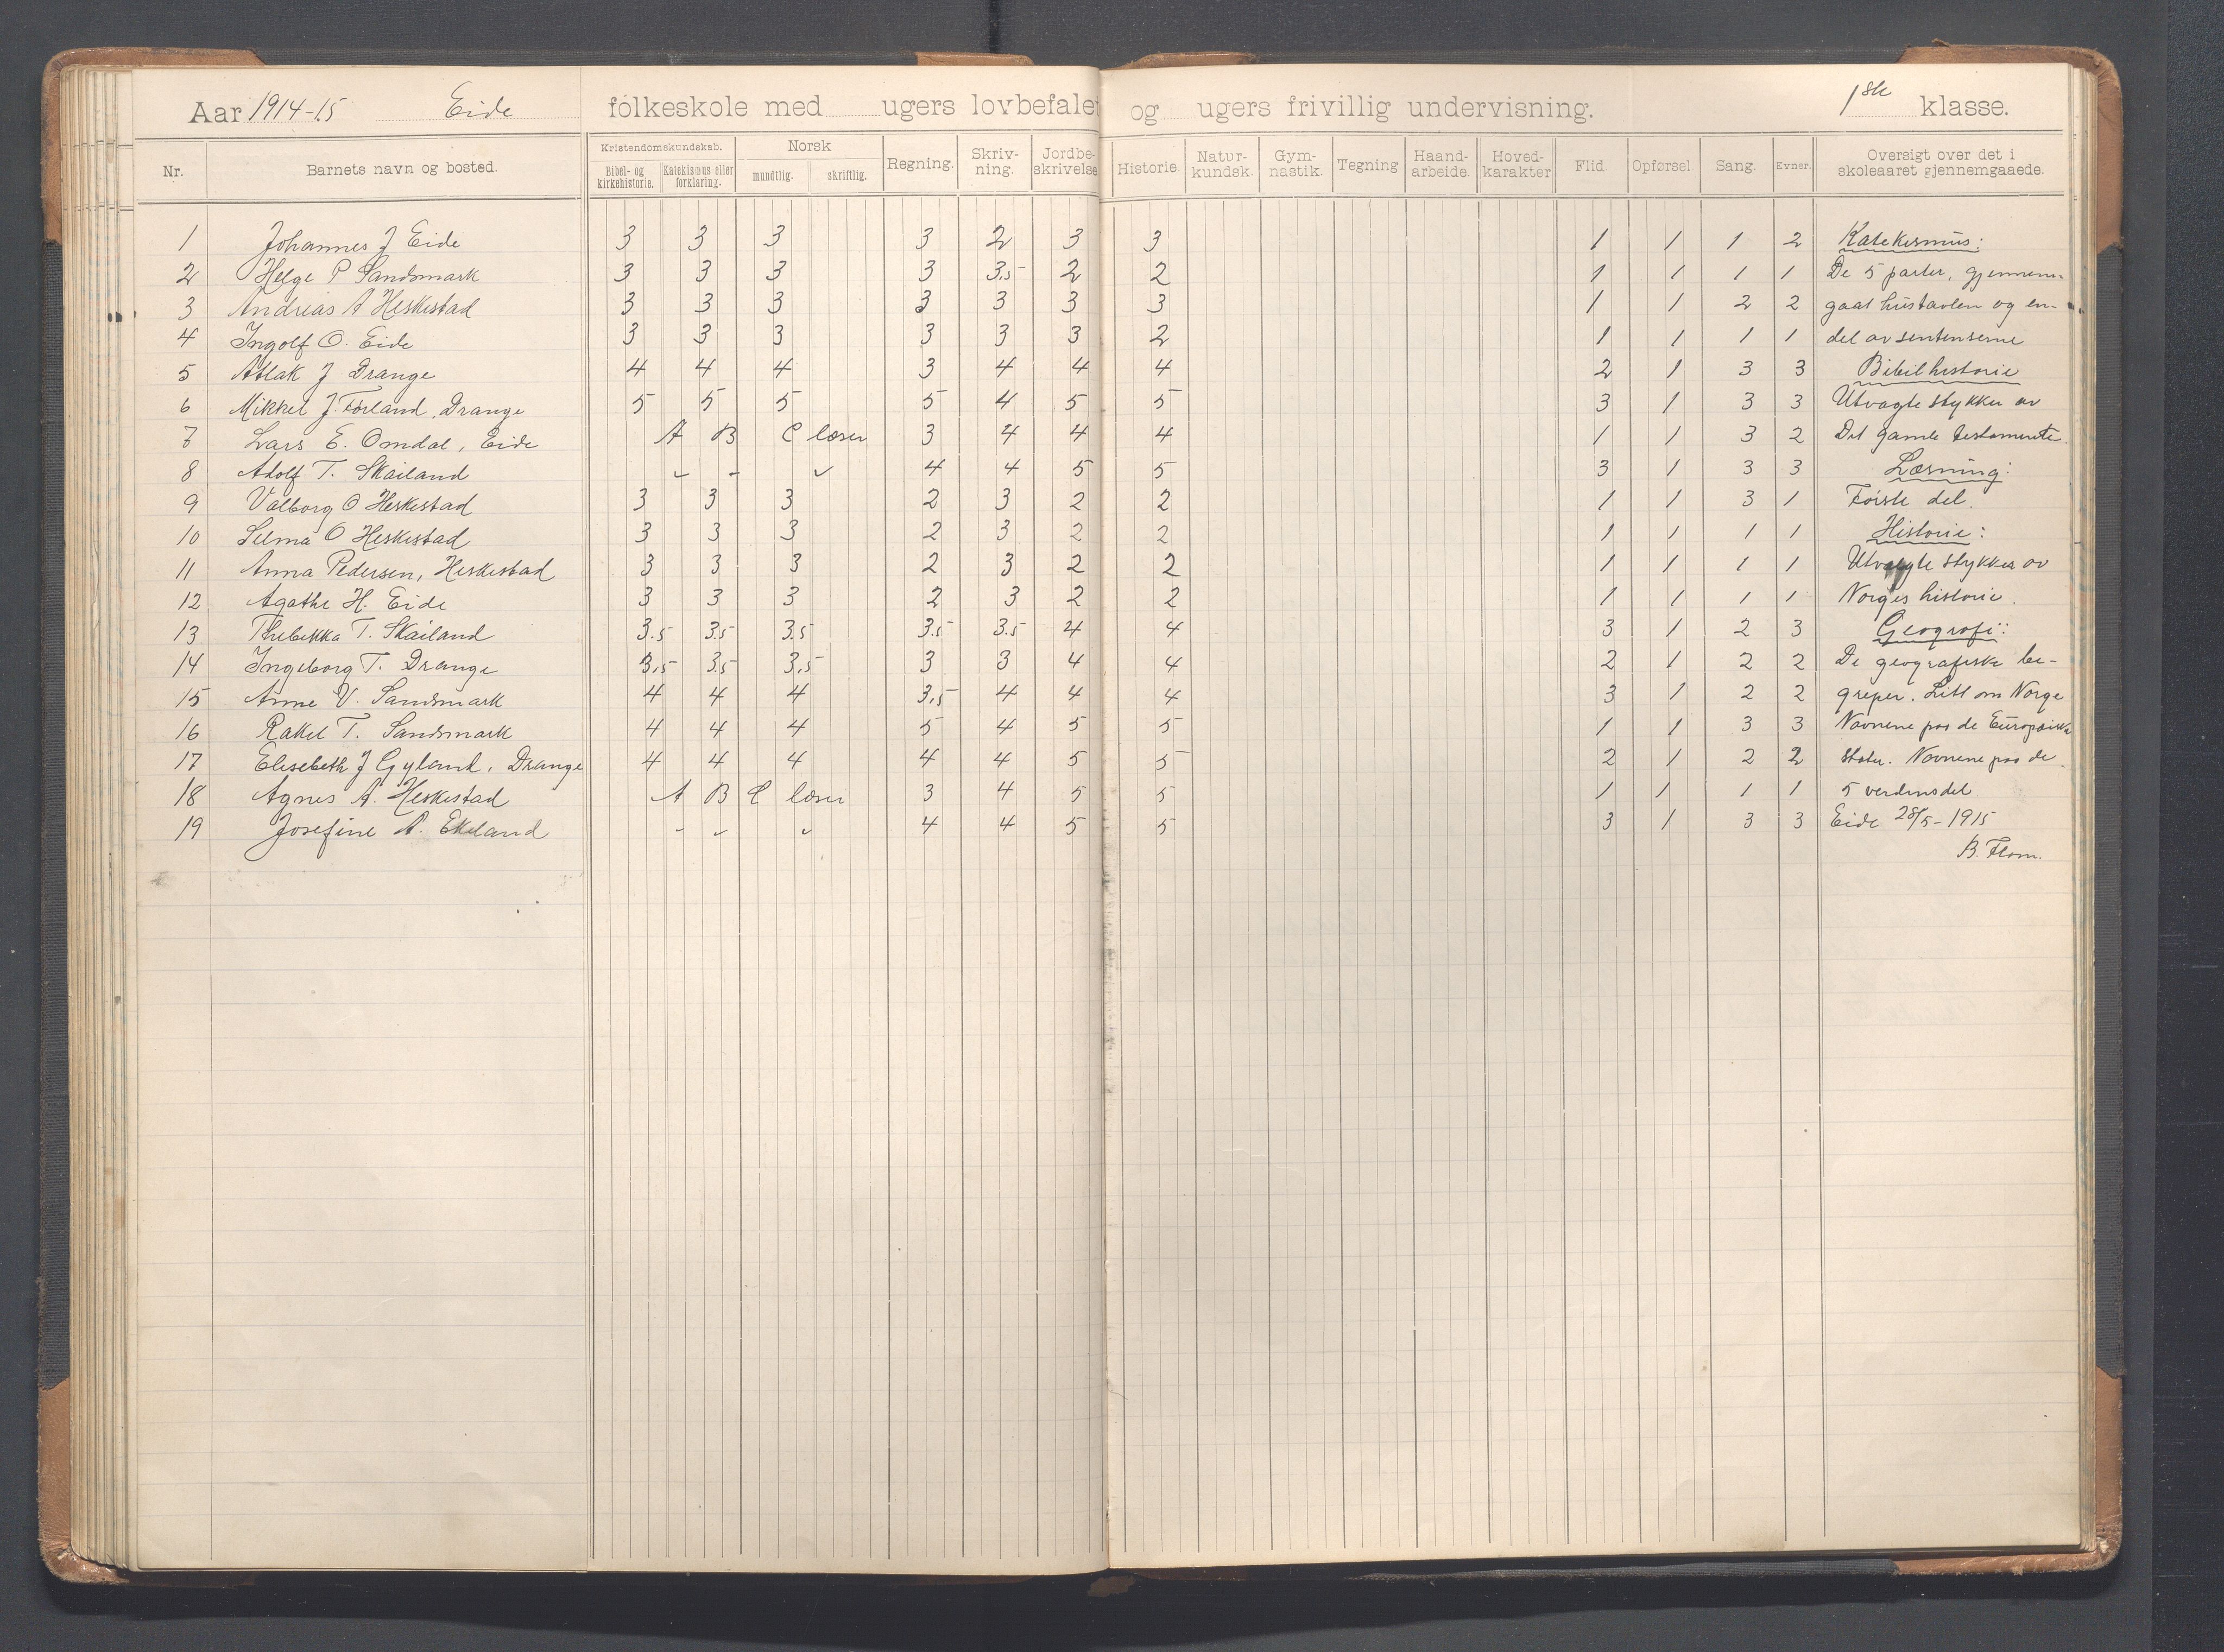 Aar 1914-15 Eide folkeskole med ugers lovbefalet og ugers frivillig undervisning. 1ste klasse.
Nr. Barnets navn og bosted. Kristendomskundskab. Bibel- og kirkehistorie. Katekismus eller forklaring. Norsk mundtlig. skriftlig. Regning. Skriv-ning. Jordbe-skrivelse Historie. Natur-kundsk. Gym-nastik. Tegning Haand-arbeide. Hoved-karakter Flid Opførsel Sang. Evner. Oversigt over det i skoleaaret gjennemgaaede.
1 Johannes J Eide 3 3 3 3 2 3 3 1 1 1 2 Katekismus:
2 Helge P Sandsmark 3 3 3 3 3,5 2 2 1 1 1 1 De 5 parter, gjennem-
3 Andreas A Heskestad 3 3 3 3 3 3 3 1 1 2 2 gaat hustavlen og en-
4 Ingolf O. Eide 3 3 3 3 3 3 2 1 1 1 1 del av sentenserne
5 Atlak J Drange 4 4 4 3 4 4 4 2 1 3 3 Bibelhistorie
6 Mikkel J. Førland, Drange 5 5 5 5 4 5 5 3 1 3 3 Utvagte stykker av
7 Lars E. Omdal, Eide A B C læser 3 4 4 4 1 1 3 2 Det gamle testamente.
8 Adolf T. Skailand 4 4 5 5 3 1 3 3 Læsning:
9 Valborg O Heskestad 3 3 3 2 3 2 2 1 1 3 1 Første del.
10 Selma O Heskestad 3 3 3 2 3 2 2 1 1 1 1 Historie:
11 Anna Pedersen, Heskestad 3 3 3 2 3 2 2 1 1 1 1 Utvalgte stykker av
12 Agathe H. Eide 3 3 3 2 3 2 2 1 1 1 1 Norges historie.
13 Thebekka T. Skailand 3.5 3.5 3.5 3.5 3.5 4 4 3 1 2 3 Geografi:
14 Ingeborg T. Drange 3,5 3.5 3,5 3 3 4 4 2 1 2 2 De geografiske be-
15 Anne V. Sandsmark 4 4 4 3,5 4 4 4 3 1 2 2 greper. Litt om Norge
16 Rakel T. Sandsmark 4 4 4 5 4 5 5 1 1 3 3 Navnene paa de Europæiske
17 Elisebeth J Gyland, Drange 4 4 4 4 4 5 5 2 1 2 2 stater. Navnene paa de
18 Agnes A. Heskestad A B C læser 3 4 5 5 1 1 1 1 5 verdensdel
19 Josefine A. Ekeland 4 4 5 5 3 1 3 3 Eide 28/5-1915
B. Flom.